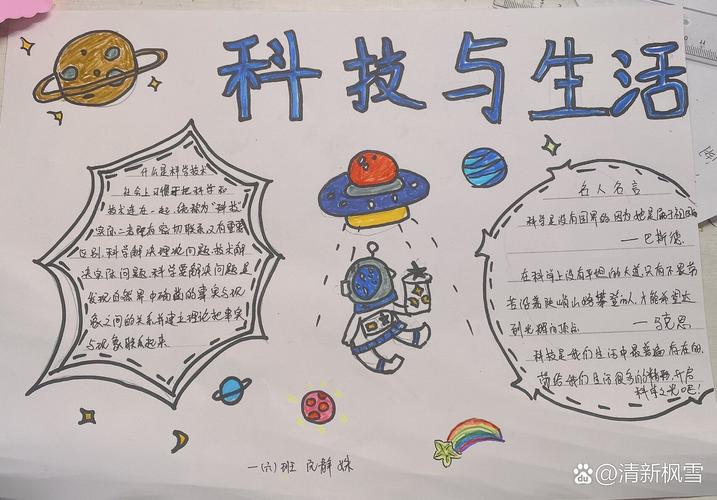 科技与生活
什么是科学技术
社会上习惯于把科学和
技术连在一起,统称为“科技”
实际二者既有密切联系,又有重要
区别.科学解决理论问题,技术解
决实际问题.科学要解决问题,是
发现自然界中确凿的事实与现
象之间的关系并建立理论把事实
与现象联系起来.
名人名言
科学是没有国界的,因为她是属于
——巴斯德.
在科学上没有平坦的大道,只有不畏劳
苦沿着陡峭山路攀登的人,才能希望达
到光辉的顶点. ——马克思
科技是我们生活中最普遍存在的,
带给我们生活很多的精彩,开启
科学之光吧!
一(六)班 静姝
Baidu @清新枫雪